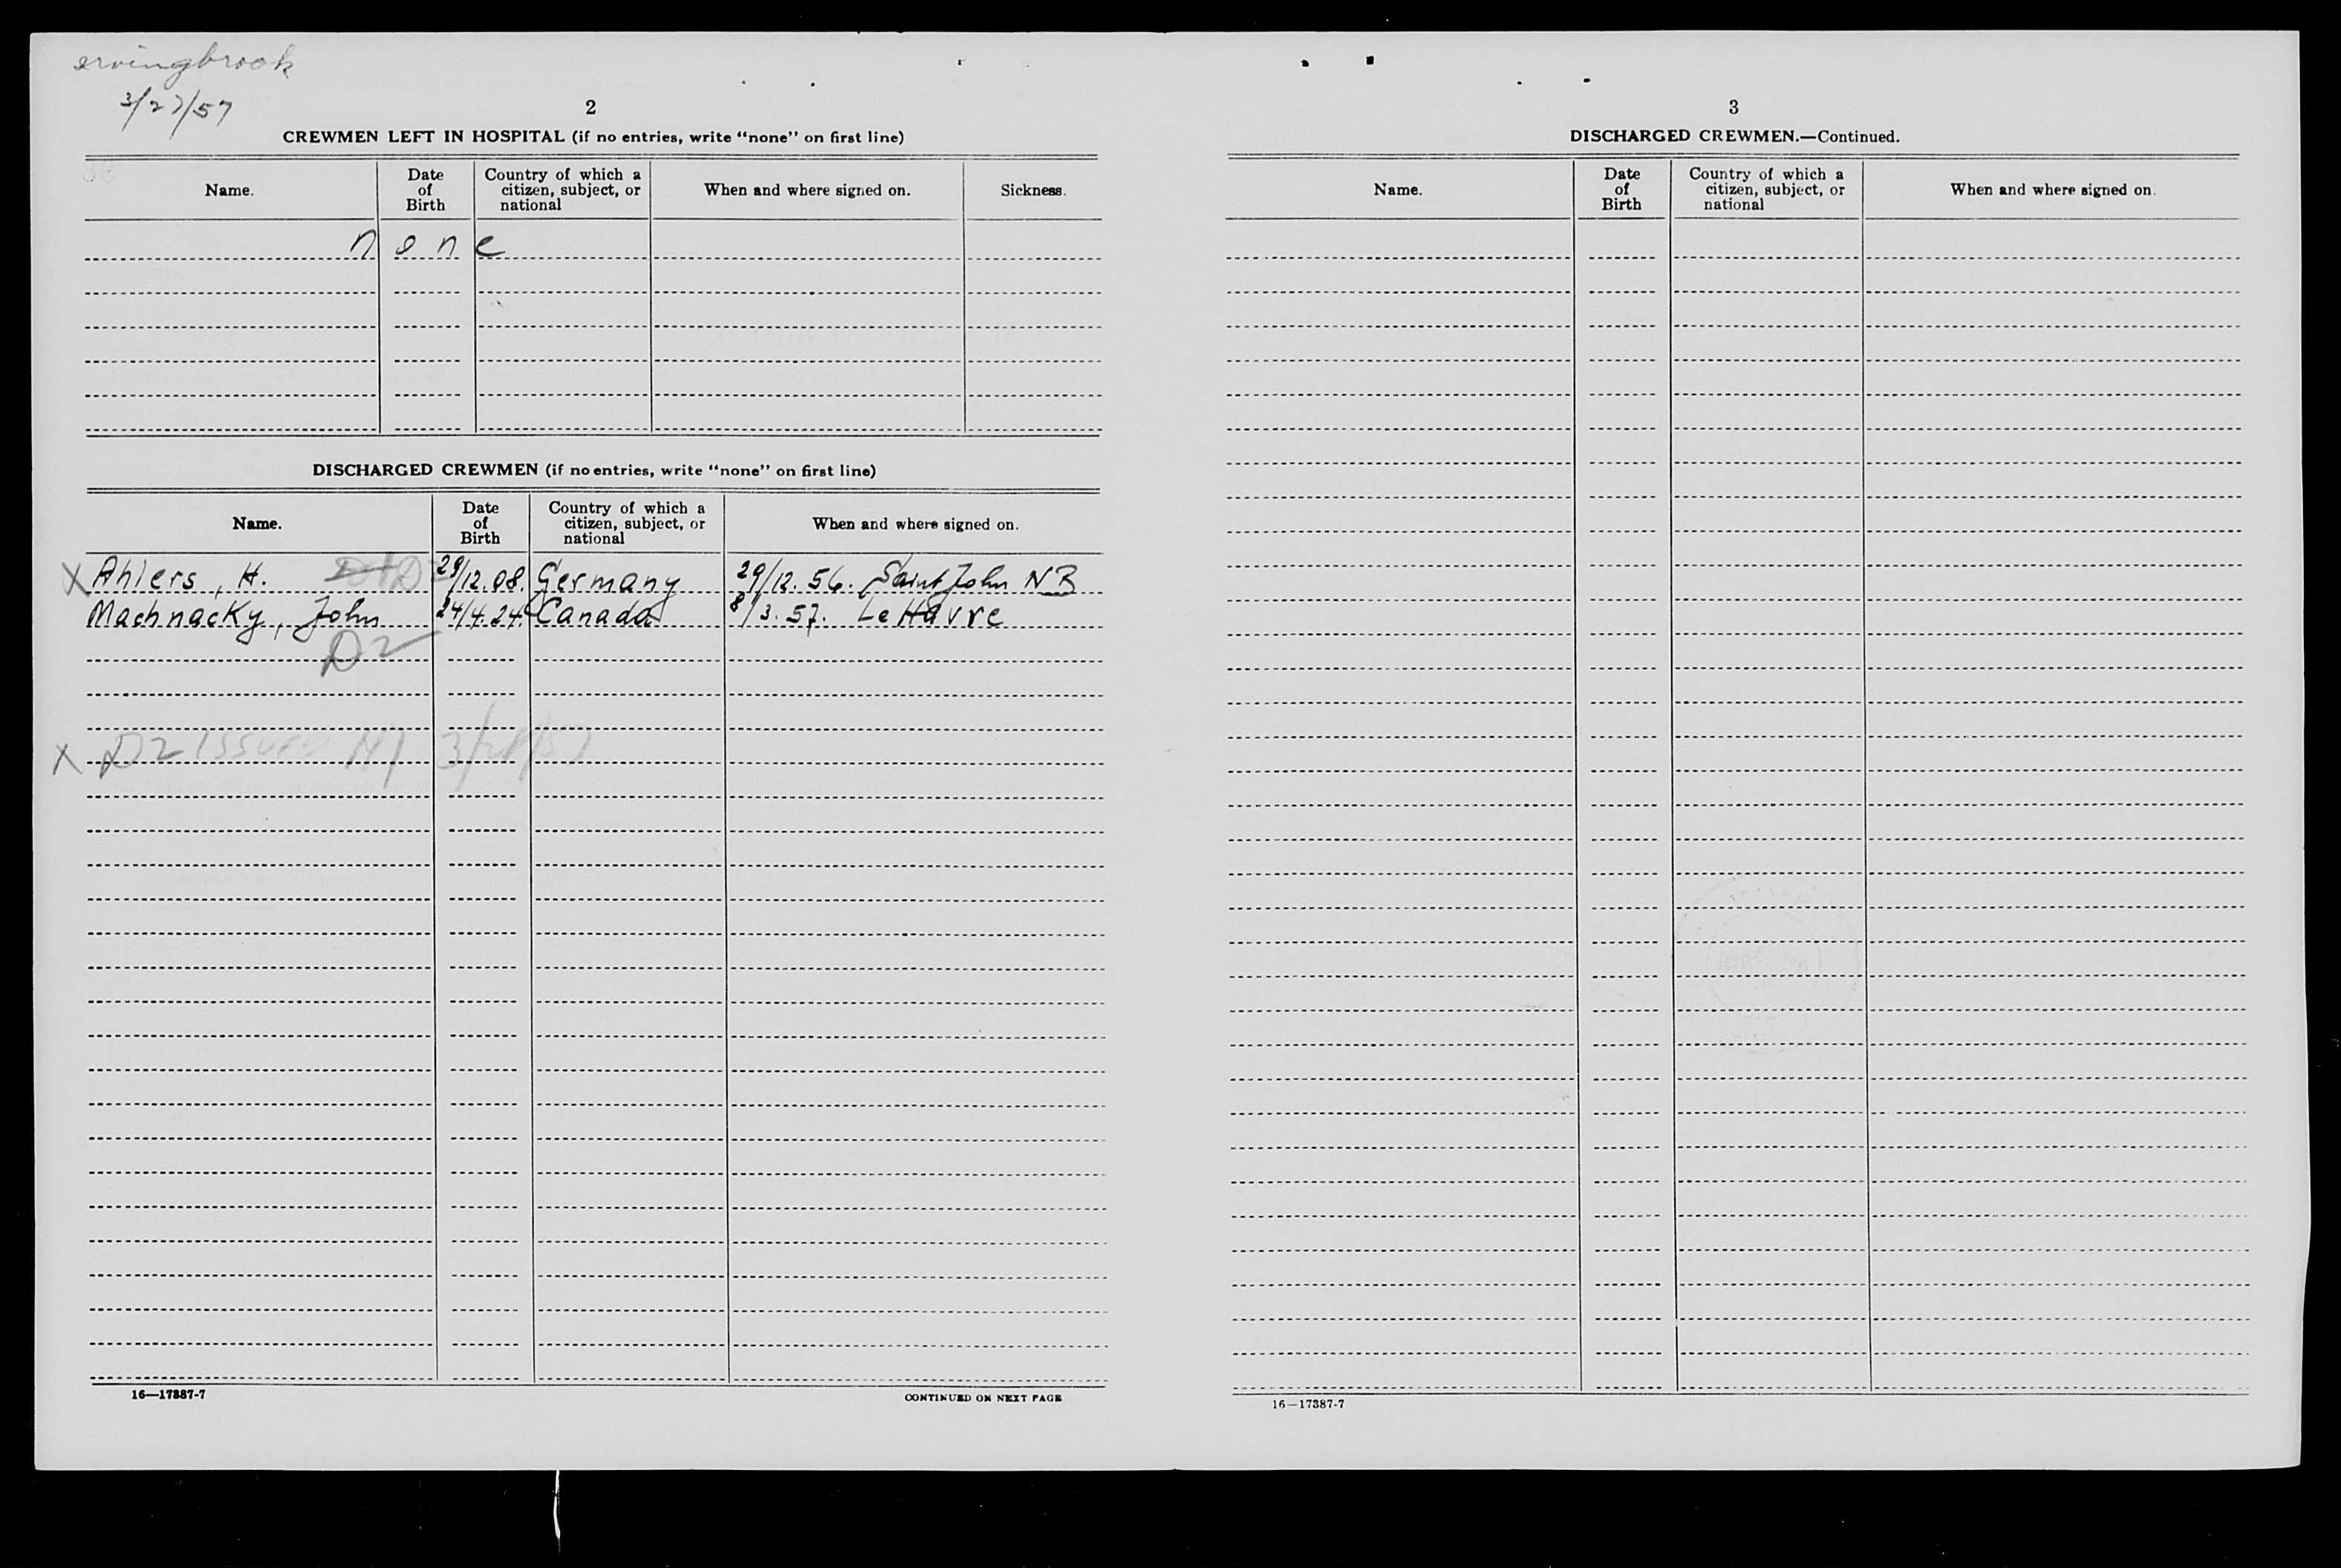 ervingbrook
3/27/57
2
CREWMEN LEFT IN HOSPITAL (if no entries, write “none” on first line)
Name. Date of Birth Country of which a citizen, subject, or national When and where signed on. Sickness.
none
DISCHARGED CREWMEN (if no entries, write “none” on first line)
Name. Date of Birth Country of which a citizen, subject, or national When and where signed on.
X Ahlers, H. 29/12.08. Germany 29/12.56. Saint John NB
Machnacky, John 24/4.24. Canada 8/3.57. Le Havre
D2
X D2 issued
16—17387-7
CONTINUED ON NEXT PAGE
3
DISCHARGED CREWMEN.—Continued.
Name. Date of Birth Country of which a citizen, subject, or national When and where signed on.
16—17387-7